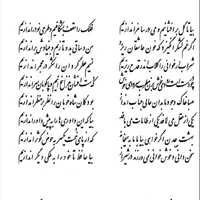 بیا تا گل برافشانیم و می در ساغر اندازیم فلک را سقف بشکافیم و طرحی نو دراندازیم
اگر غم لشکر انگیزد که خون عاشقان ریزد من و ساقی به هم تازیم و بنیادش براندازیم
شراب ارغوانی را گلاب اندر قدح ریزیم نسیم عطرگردان را شکر در مجمر اندازیم
چو در دست است رودی خوش بزن مطرب سرودی خوش که دست افشان غزل خوانیم و پاکوبان سر اندازیم
صبا خاک وجود ما بدان عالی جناب انداز بود کان شاه خوبان را نظر بر منظر اندازیم
یکی از عقل می‌لافد یکی طامات می‌بافد بیا کاین داوری‌ها را به پیش داور اندازیم
بهشت عدن اگر خواهی بیا با ما به میخانه که از پای خمت به حوض کوثر اندازیم
سخندانی و خوشخوانی نمی‌ورزند در شیراز بیا حافظ که تا خود را به ملکی دیگر اندازیم